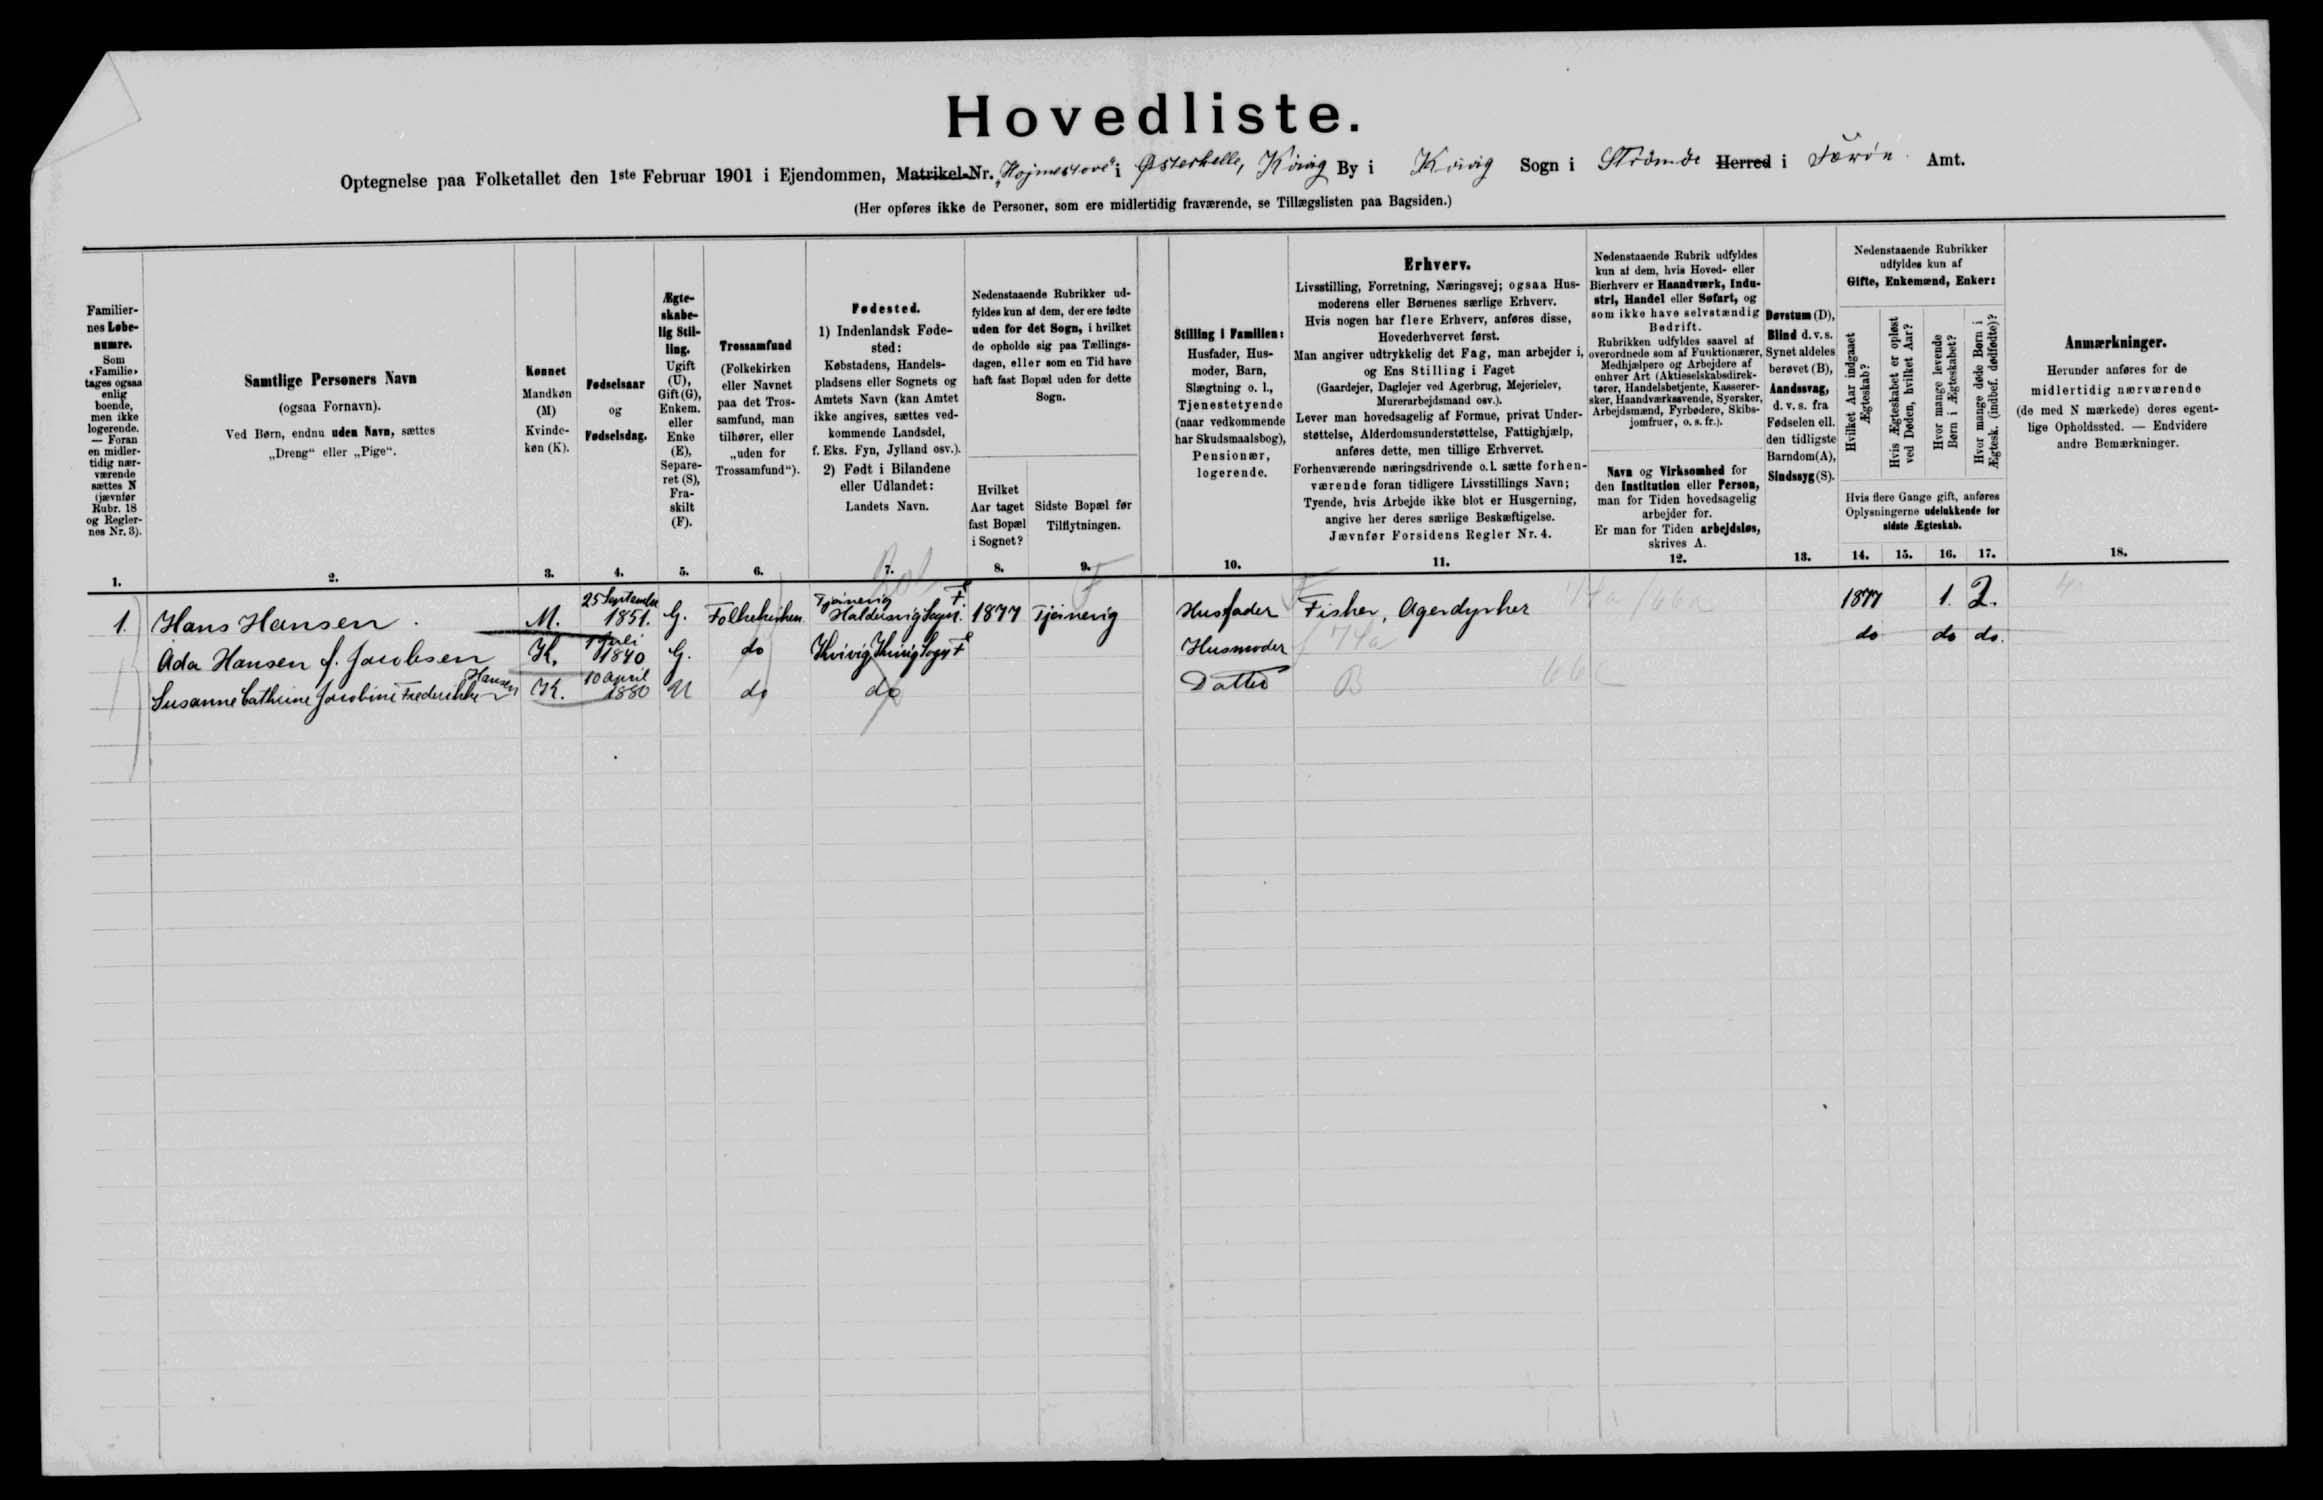 Hovedliste.
Optegnelse paa Folketallet den 1ste Februar 1901 i Ejendommen, Matrikel-Nr. „Højmestove“ i Østerhelle, Kvivig By i Kvivig Sogn i Strömöe Herred i Færöe Amt.
(Her opføres ikke de Personer, som ere midlertidig fraværende, se Tillægslisten paa Bagsiden.)
Familiernes Løbenumre.
Som «Familie» tages ogsaa enlig boende, men ikke logerende. — Foran en midlertidig nærværende sættes N (jævnfør Rubr. 18 og Reglernes Nr. 3).
1.
Samtlige Personers Navn
(ogsaa Fornavn).
Ved Børn, endnu uden Navn, sættes
„Dreng“ eller „Pige“.
2.
Kønnet
Mandkøn (M)
Kvindekøn (K).
3.
Fødselsaar
og
Fødselsdag.
4.
Ægteskabelig Stilling.
Ugift (U), Gift (G), Enkem. eller Enke (E), Separeret (S), Fraskilt (F).
5.
Trossamfund
(Folkekirken eller Navnet paa det Trossamfund, man tilhører, eller „uden for Trossamfund“).
6.
Fødested.
1) Indenlandsk Fødested:
Købstadens, Handelspladsens eller Sognets og Amtets Navn (kan Amtet ikke angives, sættes vedkommende Landsdel, f. Eks. Fyn, Jylland osv.).
2) Født i Bilandene eller Udlandet:
Landets Navn.
7.
Nedenstaaende Rubrikker udfyldes kun af dem, der ere fødte uden for det Sogn, i hvilket de opholde sig paa Tællingsdagen, eller som en Tid have haft fast Bopæl uden for dette Sogn.
Hvilket Aar taget fast Bopæl i Sognet?
8.
Sidste Bopæl før Tilflytningen.
9.
Stilling i Familien:
Husfader, Husmoder, Barn, Slægtning o. l., Tjenestetyende (naar vedkommende har Skudsmaalsbog), Pensionær, logerende.
10.
Erhverv.
Livsstilling, Forretning, Næringsvej; ogsaa Husmoderens eller Børnenes særlige Erhverv.
Hvis nogen har flere Erhverv, anføres disse, Hovederhvervet først.
Man angiver udtrykkelig det Fag, man arbejder i, og Ens Stilling i Faget
(Gaardejer, Daglejer ved Agerbrug, Mejerielev, Murerarbejdsmand osv.).
Lever man hovedsagelig af Formue, privat Understøttelse, Alderdomsunderstøttelse, Fattighjælp, anføres dette, men tillige Erhvervet.
Forhenværende næringsdrivende o. l. sætte forhenværende foran tidligere Livsstillings Navn;
Tyende, hvis Arbejde ikke blot er Husgerning, angive her deres særlige Beskæftigelse.
Jævnfør Forsidens Regler Nr. 4.
11.
Nedenstaaende Rubrik udfyldes kun af dem, hvis Hoved- eller Bierhverv er Haandværk, Industri, Handel eller Søfart, og som ikke have selvstændig Bedrift.
Rubrikken udfyldes saavel af overordnede som af Funktionærer, Medhjælpere og Arbejdere af enhver Art (Aktieselskabsdirektører, Handelsbetjente, Kasserersker, Haandværkssvende, Syersker, Arbejdsmænd, Fyrbødere, Skibsjomfruer, o. s. fr.).
Navn og Virksomhed for den Institution eller Person, man for Tiden hovedsagelig arbejder for.
Er man for Tiden arbejdsløs, skrives A.
12.
Døvstum (D), Blind d. v. s. Synet aldeles berøvet (B), Aandssvag, d. v. s. fra Fødselen ell. den tidligste Barndom (A), Sindssyg (S).
13.
Nedenstaaende Rubrikker udfyldes kun af
Gifte, Enkemænd, Enker:
Hvilket Aar indgaaet Ægteskab?
Hvis Ægteskabet er opløst ved Døden, hvilket Aar?
Hvor mange levende Børn i Ægteskabet?
Hvor mange døde Børn i Ægtesk. (indbef. dødfødte)?
Hvis flere Gange gift, anføres Oplysningerne udelukkende for sidste Ægteskab.
14. 15. 16. 17.
Anmærkninger.
Herunder anføres for de midlertidig nærværende (de med N mærkede) deres egentlige Opholdssted. — Endvidere andre Bemærkninger.
18.
1. Hans Hansen. M. 25 September 1851. G. Folkekirken Tjörnevig Haldersvig Sogn. F 1877 Tjörnevig Husfader F Fisker, Agerdyrker 74a/66a 1877 1. 2.
Ada Hansen f. Jacobsen K. 1 Juli 1840 G. do Kvivig, Kvivig Sogn F Husmoder f 74a do do do.
Susanne Cathrine Jacobine Frederikke Hansen K. 10 April 1880 U do do Datter B 66c